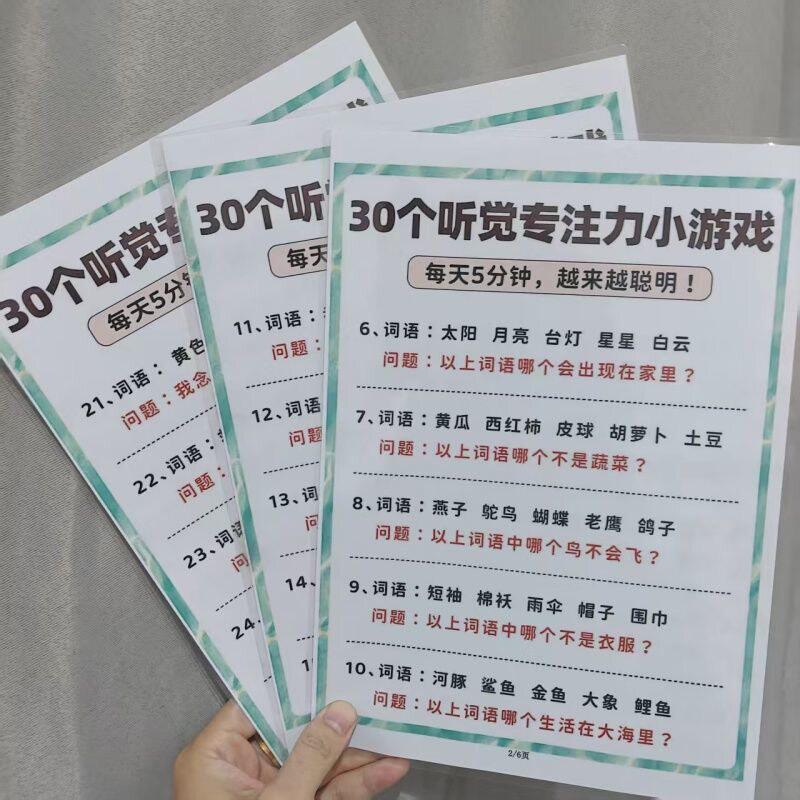 30个听觉专注力小游戏
每天5分钟，越来越聪明！
6、词语：太阳 月亮 台灯 星星 白云
问题：以上词语哪个会出现在家里？
7、词语：黄瓜 西红柿 皮球 胡萝卜 土豆
问题：以上词语哪个不是蔬菜？
8、词语：燕子 鸵鸟 蝴蝶 老鹰 鸽子
问题：以上词语中哪个鸟不会飞？
9、词语：短袖 棉袄 雨伞 帽子 围巾
问题：以上词语中哪个不是衣服？
10、词语：河豚 鲨鱼 金鱼 大象 鲤鱼
问题：以上词语哪个生活在大海里？
2/6页
30个听
每天
11、词语：
问题：
12、词语
问题
13、词
问
14、
30个听觉
每天5分钟
21、词语：黄色
问题：我念
22、词语：
问题：
23、词语
问
24、